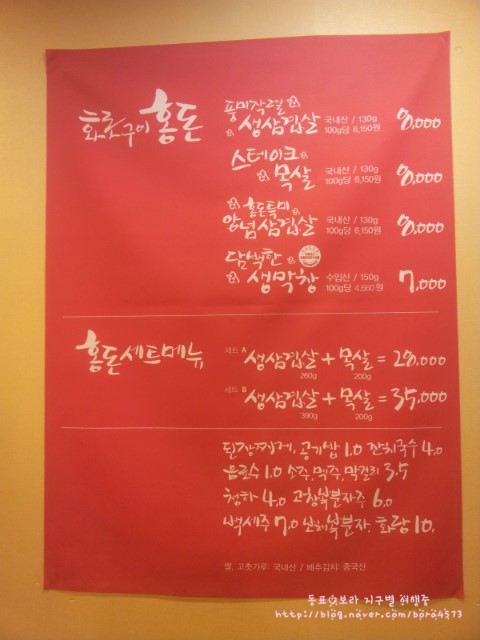 화로구이 홍돈
풍미작렬
생삼겹살 국내산 / 130g 100g당 6,150원 8,000
스테이크
목살 국내산 / 130g 100g당 6,150원 8,000
홍돈특미
양념삼겹살 국내산 / 130g 100g당 6,150원 8,000
담백한
생막창 수입산 / 150g 100g당 4,660원 7,000
홍돈세트메뉴
세트 A 생삼겹살 + 목살 = 28,000
260g 200g
세트 B 생삼겹살 + 목살 = 35,000
390g 200g
된장찌개, 공기밥 1.0 잔치국수 4.0
음료수 1.0 소주, 맥주, 막걸리 3.5
청하 4.0 고창복분자주 6.0
백세주 7.0 보해복분자, 화랑 10.
쌀, 고춧가루: 국내산 / 배추김치: 중국산
동표☆보라 지구별 여행중
http://blog.naver.com/bora4573